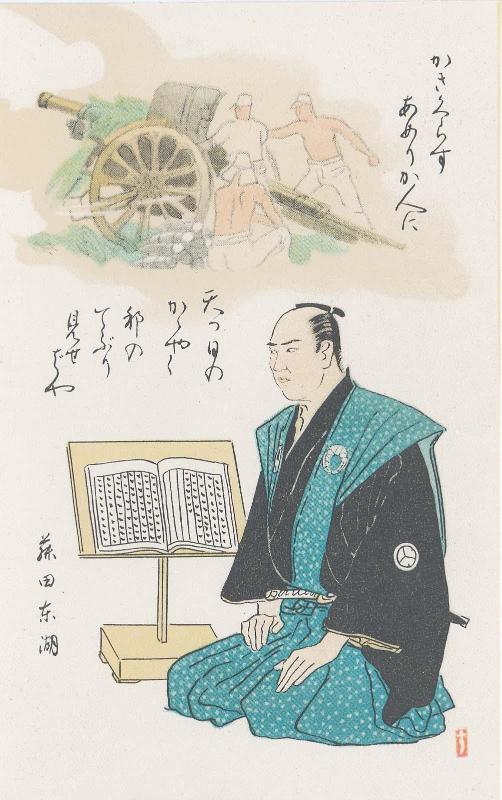 かきくらす
あめりか人に
天つ日の
かゞやく
邦の
てぶり
見せばや
藤田东湖